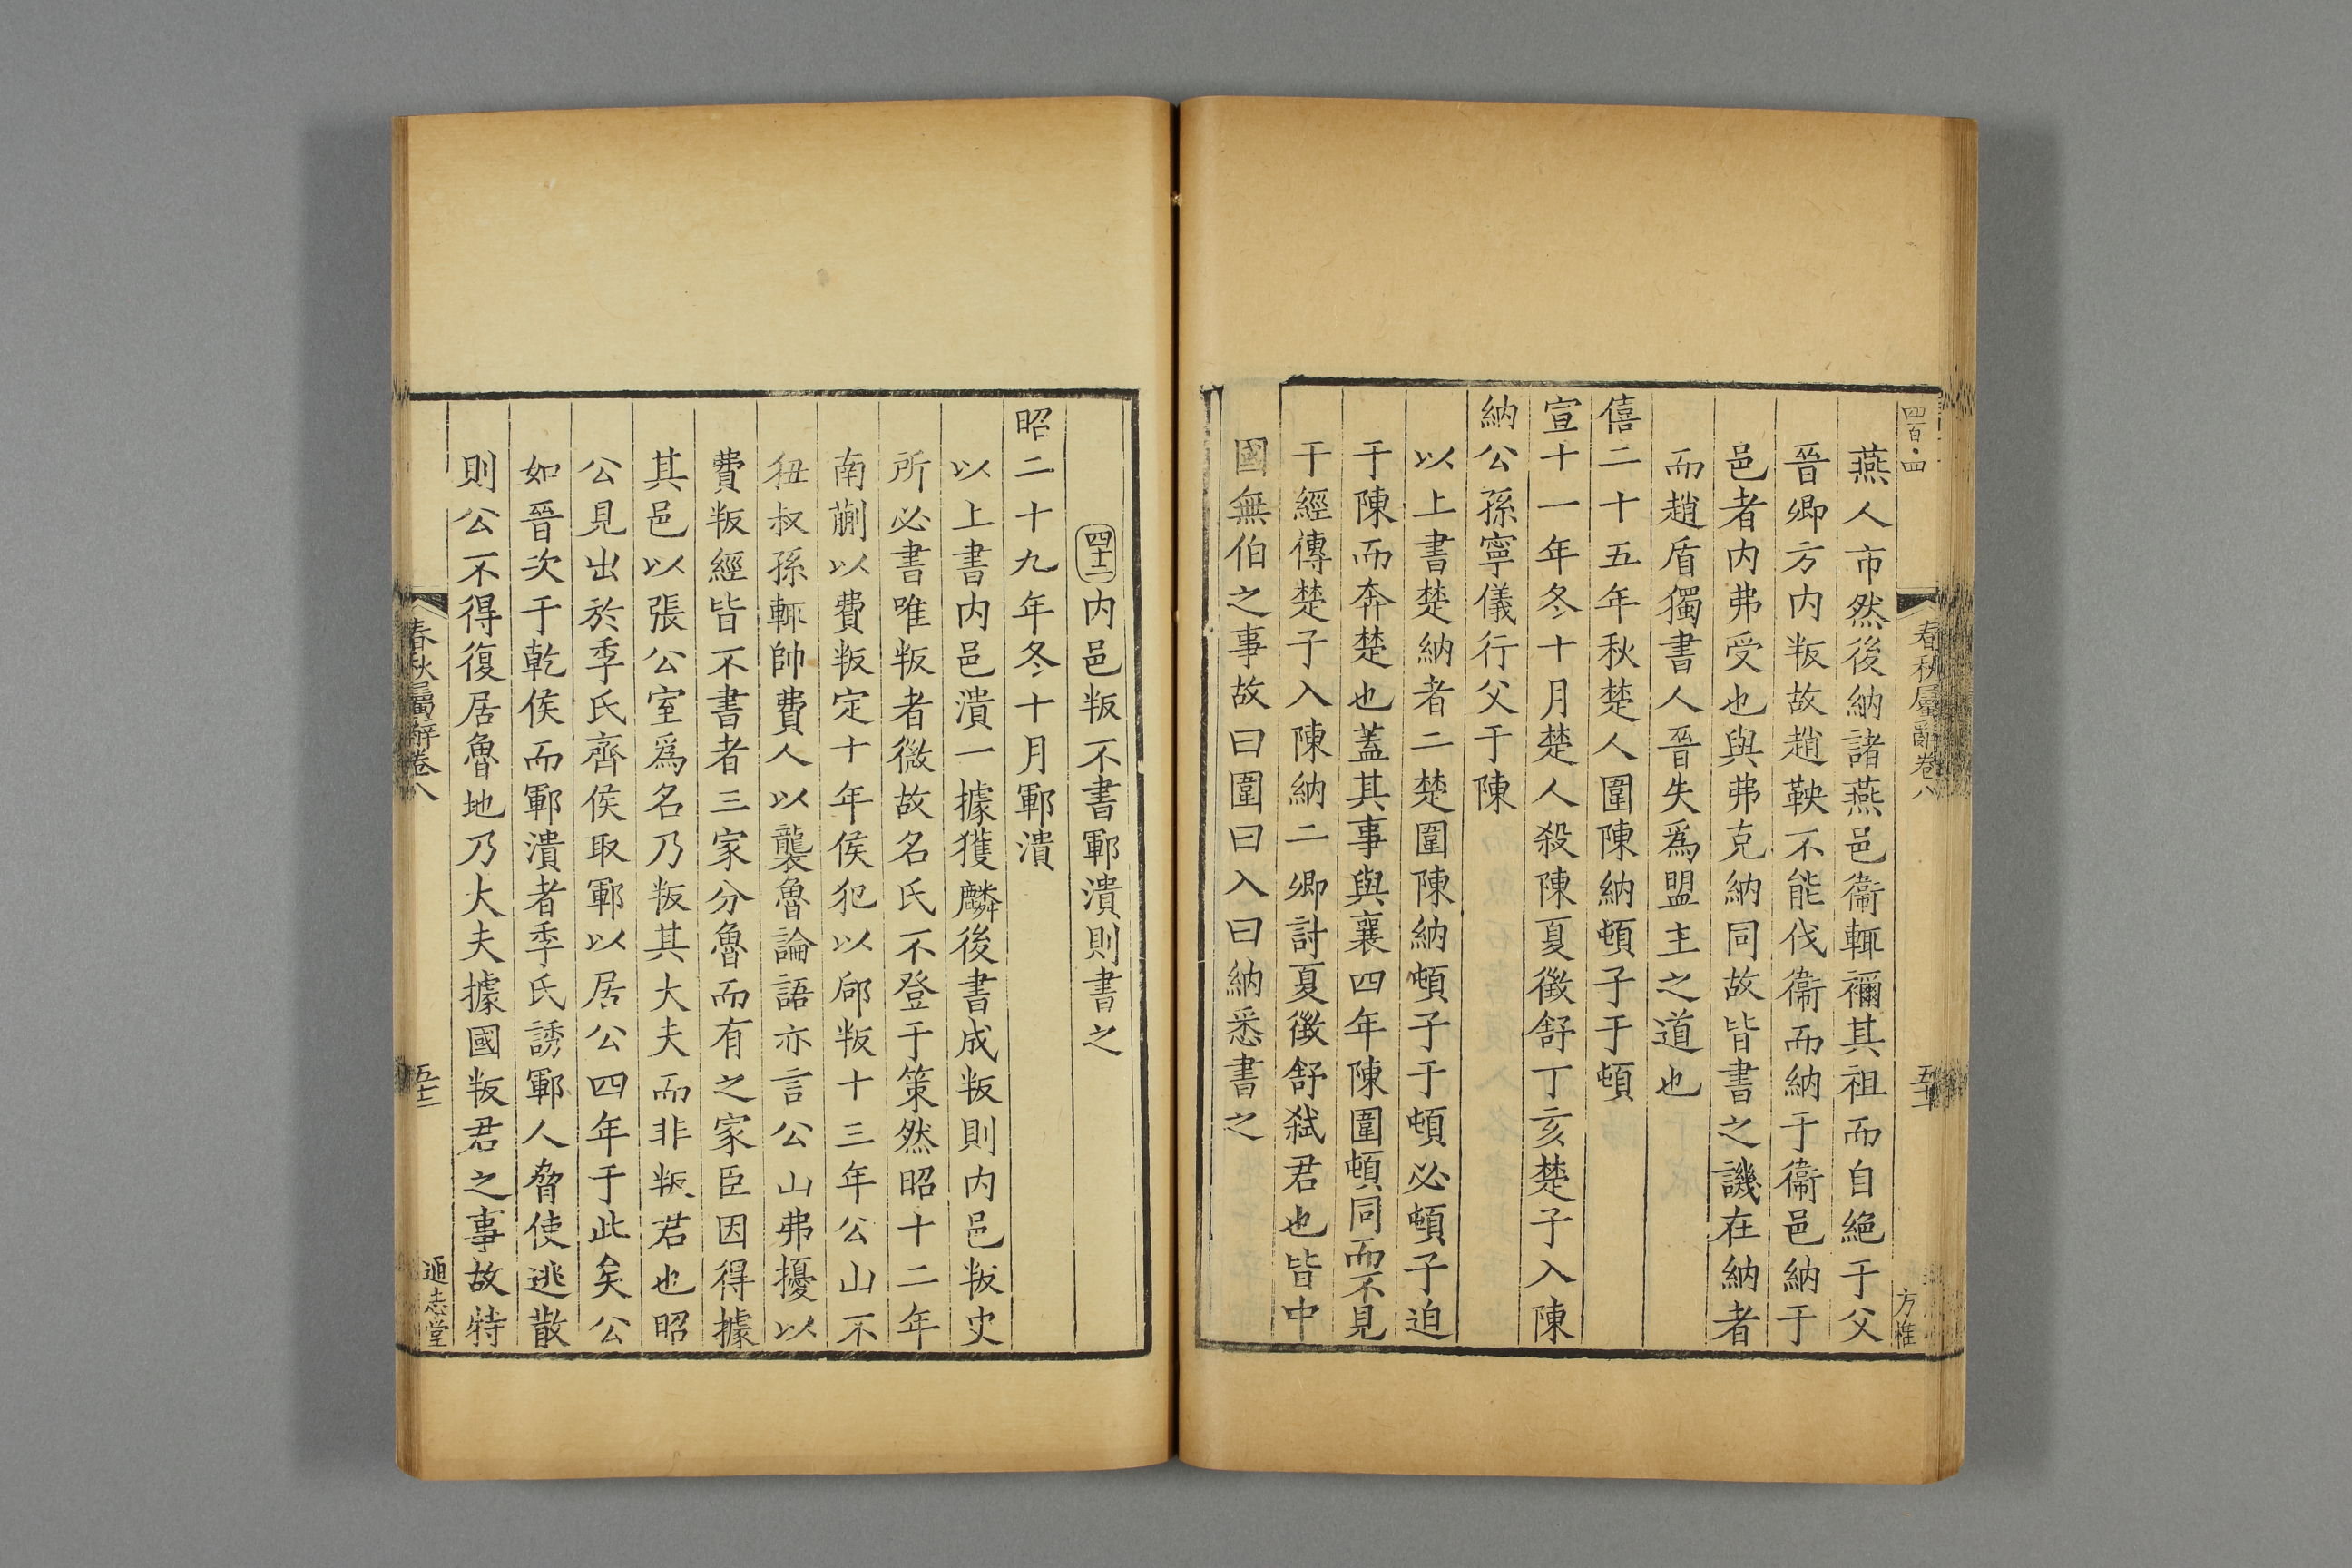 四百四
春秋屬辭卷八
方惟
燕人市然後納諸燕邑衞輒禰其祖而自絕于父
晉卿方内叛故趙鞅不能伐衞而納于衞邑納于
邑者内弗受也與弗克納同故皆書之譏在納者
而趙盾獨書人晉失爲盟主之道也
僖二十五年秋楚人圍陳納頓子于頓
宣十一年冬十月楚人殺陳夏徵舒丁亥楚子入陳
納公孫寧儀行父于陳
以上書楚納者二楚圍陳納頓子于頓必頓子迫
于陳而奔楚也蓋其事與襄四年陳圍頓同而不見
于經傳楚子入陳納二卿討夏徵舒弑君也皆中
國無伯之事故曰圍曰入曰納悉書之
四十二内邑叛不書鄆潰則書之
昭二十九年冬十月鄆潰
以上書内邑潰一據獲麟後書成叛則内邑叛史
所必書唯叛者微故名氏不登于策然昭十二年
南蒯以費叛定十年侯犯以郈叛十三年公山不
狃叔孫輒帥費人以襲魯論語亦言公山弗擾以
費叛經皆不書者三家分魯而有之家臣因得據
其邑以張公室爲名乃叛其大夫而非叛君也昭
公見出於季氏齊侯取鄆以居公四年于此矣公
如晉次于乾侯而鄆潰者季氏誘鄆人脅使逃散
則公不得復居魯地乃大夫據國叛君之事故特
春秋屬辭卷八
五十二
通志堂